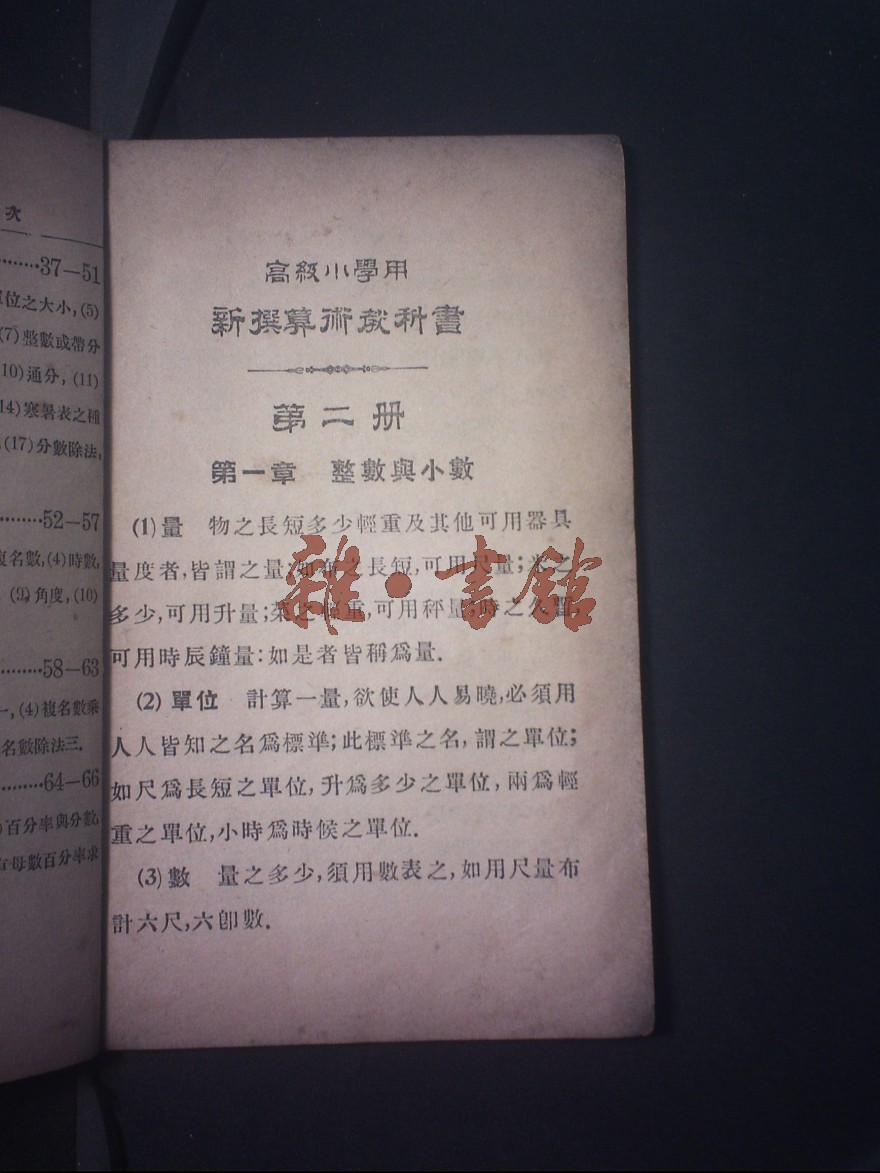 次
………37—51
單位之大小,(5)
(7)整數或帶分
10)通分, (11)
14)寒暑表之種
(17)分數除法,
………52—57
複名數,(4)時數,
(9)角度,(10)
………58—63
一,(4)複名數乘
名數除法三.
………64—66
百分率與分數,
母數百分率求
高級小學用
新撰算術教科書
第二册
第一章 整數與小數
(1)量 物之長短多少輕重及其他可用器具
量度者,皆謂之量:如布之長短,可用尺量;米之
多少,可用升量;菜之輕重,可用秤量;時之久暫,
可用時辰鐘量:如是者皆稱爲量.
(2) 單位 計算一量,欲使人人易曉,必須用
人人皆知之名爲標準;此標準之名,謂之單位;
如尺爲長短之單位,升爲多少之單位,兩爲輕
重之單位,小時爲時候之單位.
(3)數 量之多少,須用數表之,如用尺量布
計六尺,六卽數.
雜·書館